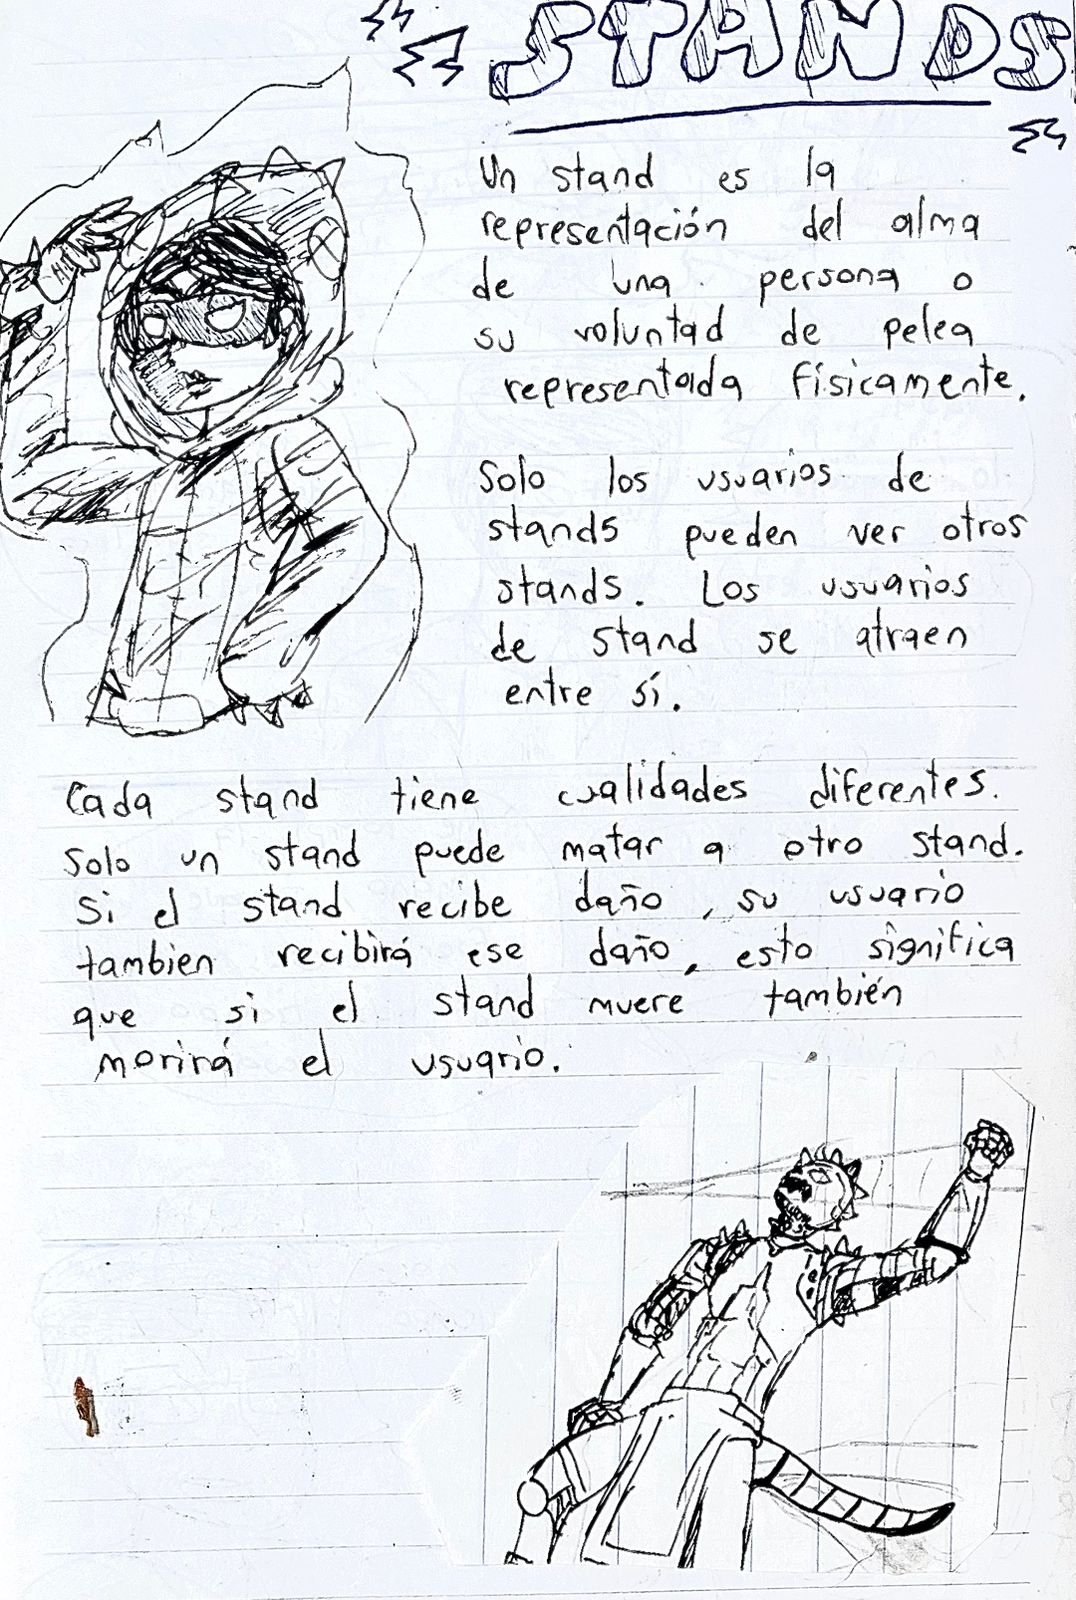 STANDS
Un stand es la
representación del alma
de una persona o
su voluntad de pelea
representada físicamente.
Solo los usuarios de
stands pueden ver otros
stands. Los usuarios
de stand se atraen
entre sí.
Cada stand tiene cualidades diferentes.
Solo un stand puede matar a otro stand.
Si el stand recibe daño, su usuario
tambien recibirá ese daño, esto significa
que si el stand muere también
morirá el usuario.